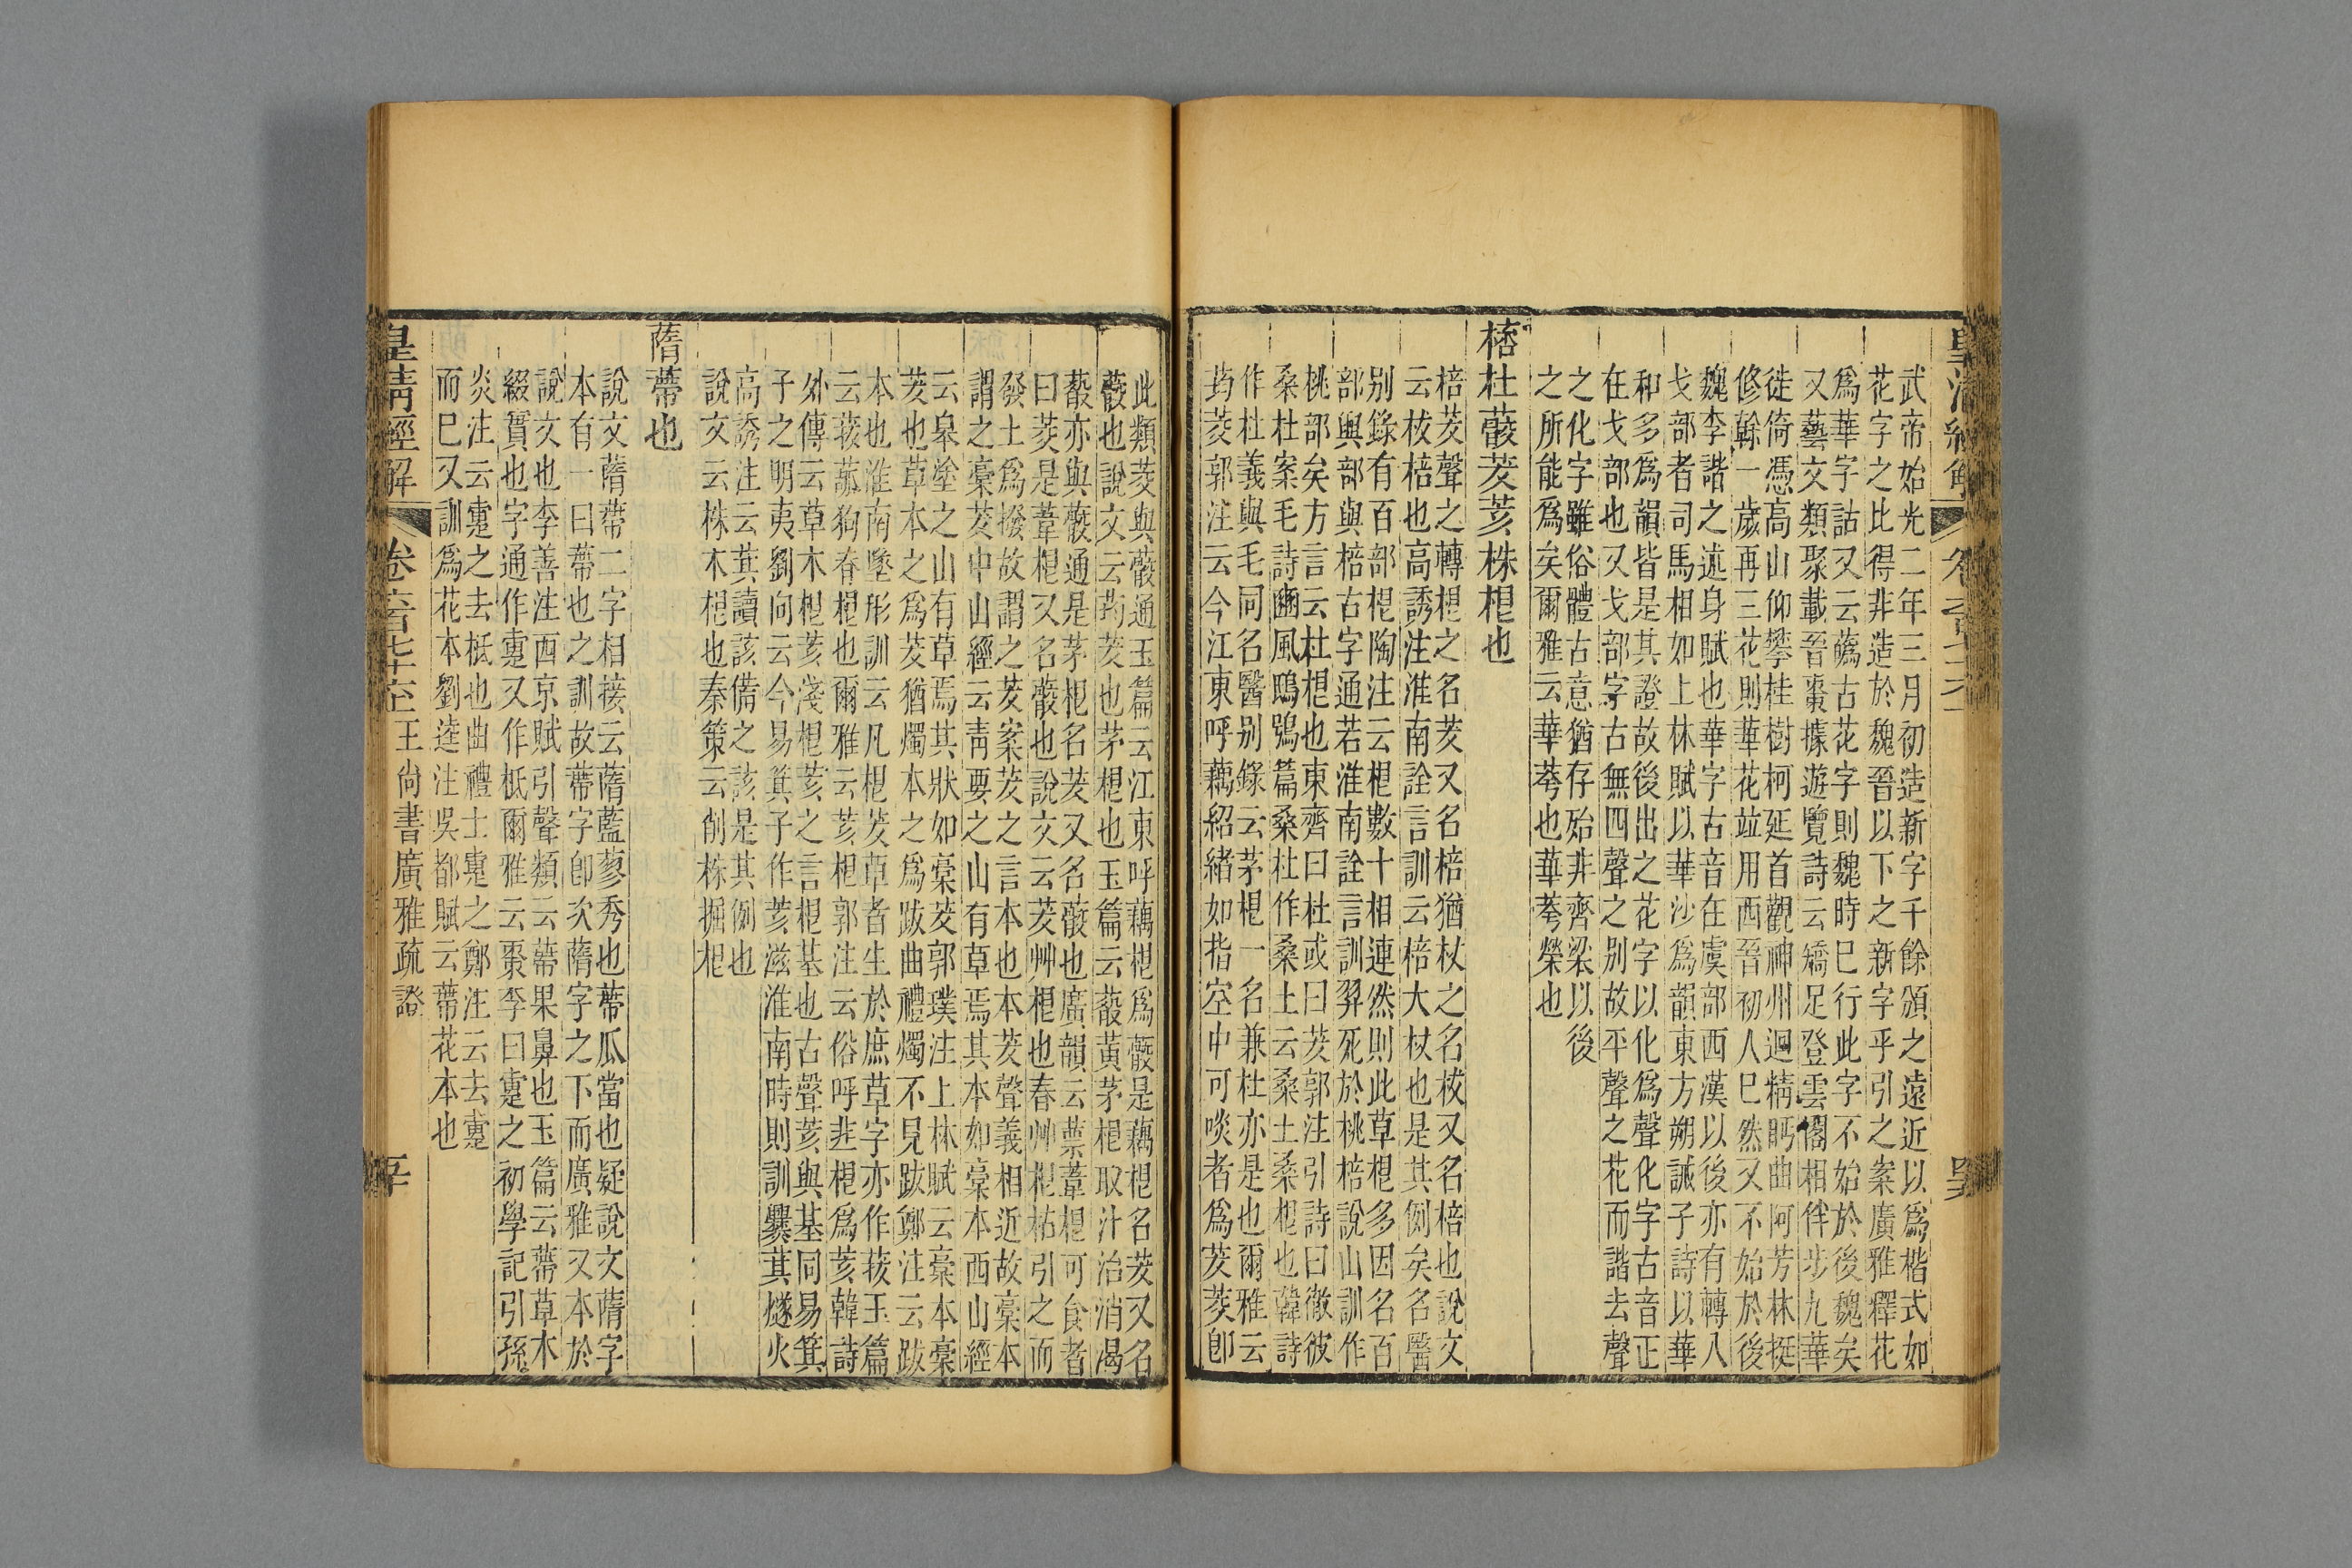 皇清經解
武帝始光二年三月初造新字千餘頒之遠近以爲楷式如
花字之比得非造於魏晉以下之新字乎引之案廣雅釋花
爲華字詁又云蘤古花字則魏時已行此字不始於後魏矣
又藝文類聚載晉棗據遊覽詩云矯足登雲閣相伴步九華
徙倚憑高山仰攀桂樹柯延首觀神州迴精眄曲阿芳林挺
修榦一歲再三花則華花竝用西晉初人巳然又不始於後
魏李諧之述身賦也華字古音在虞部西漢以後亦有轉入
戈部者司馬相如上林賦以華沙爲韻東方朔誡子詩以華
和多爲韻皆是其證故後出之花字以化爲聲化字古音正
在戈部也又戈部字古無四聲之別故平聲之花而諧去聲
之化字雖俗體古意猶存殆非齊梁以後
之所能爲矣爾雅云華荂也華荂榮也
㮯杜蔽茇荄株棍也
棓茇聲之轉棍之名茇又名棓猶杖之名柭又名棓也說文
云柭棓也高誘注淮南詮言訓云棓大杖也是其例矣名醫
別錄有百部棍陶注云棍數十相連然則此草棍多因名百
部與部與棓古字通若淮南詮言訓羿死於桃棓說山訓作
桃部矣方言云杜棍也東齊曰杜或曰茇郭注引詩曰徹彼
桑杜案毛詩豳風鴟鴞篇桑杜作桑土云桑土桑棍也韓詩
作杜義與毛同名醫別錄云茅棍一名兼杜亦是也爾雅云
荺茭郭注云今江東呼藕紹緒如指空中可啖者爲茭茭卽
此類茭與蔽通玉篇云江東呼藕棍爲蔽是藕棍名茭又名
蔽也說文云荺茇也茅棍也玉篇云蔽黃茅棍取汁治消渴
蔽亦與蔽通是茅棍名茇又名蔽也廣韻云葉葦棍可食者
曰茭是葦棍又名蔽也說文云茇艸棍也春艸棍枯引之而
發土爲撥故謂之茇案茇之言本也本茇聲義相近故稾本
謂之稾茇中山經云靑要之山有草焉其本如稾本西山經
云皋塗之山有草焉其狀如稾茇郭璞注上林賦云稾本稾
茇也草本之爲茇猶燭本之爲跋曲禮燭不見跋鄭注云跋
本也淮南墬形訓云凡棍茇草者生於庶草字亦作菝玉篇
云菝蒛狗脊棍也爾雅云荄棍郭注云俗呼韭棍爲荄韓詩
外傳云草木棍荄淺棍荄之言棍基也古聲荄與基同易箕
子之明夷劉向云今易箕子作荄滋淮南時則訓爨萁燧火
高誘注云萁讀該備之該是其例也
說文云株木棍也秦策云削株掘棍
蓨蔕也
說文蓨蔕二字相接云蓨藍蓼秀也蔕瓜當也疑說文蓨字
本有一曰蔕也之訓故蔕字卽次蓨字之下而廣雅又本於
說文也李善注西京賦引聲類云蔕果鼻也玉篇云蔕草木
綴實也字通作疐又作柢爾雅云棗李曰疐之初學記引孫
炎注云疐之去柢也曲禮士疐之鄭注云去疐
而巳又訓爲花本劉逵注吳都賦云蔕花本也
皇清經解 卷六百七十六上 王尚書廣雅疏證